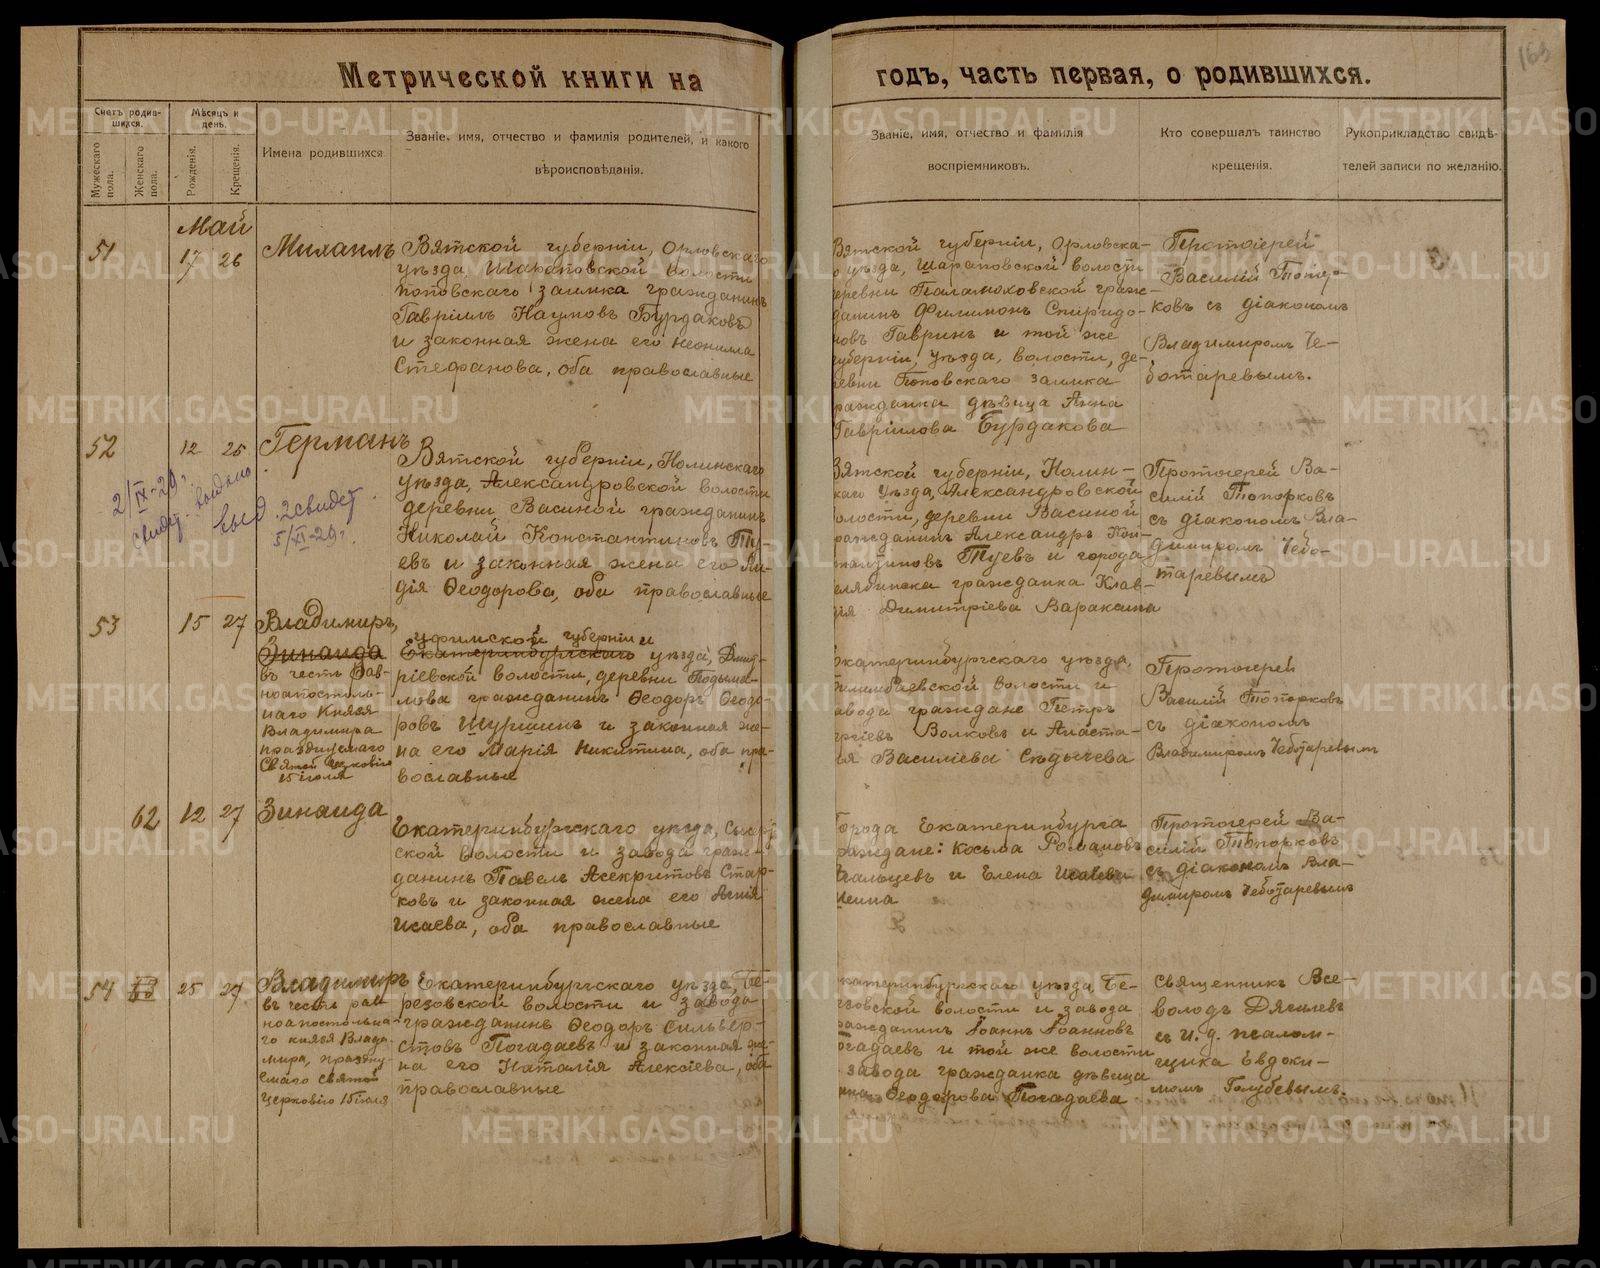 163
Метрической книги на
годъ, часть первая, о родившихся.
Счетъ родив-
шихся.
Мужескаго
пола.
Женскаго
пола.
Мѣсяцъ и
день.
Рожденія.
Крещенія.
Имена родившихся
Званіе, имя, отчество и фамилія родителей, и какого
вѣроисповѣданія.
Званіе, имя, отчество и фамилія
воспріемниковъ.
Кто совершалъ таинство
крещенія.
Рукоприкладство свидѣ-
телей записи по желанію.
Май
51
17 26
Михаилъ
Вятской губерніи, Орловскаго
уѣзда, Шараповской волости
Поповскаго заимка гражданинъ
Гавріилъ Наумовъ Бурдаковъ
и законная жена его Неонилла
Стефанова, оба православные
Вятской губерніи, Орловска-
о уѣзда, Шараповской волости
еревни Паламоховской граж-
данинъ Филимонъ Спиридо-
новъ Гавринъ и той же
губерніи, уѣзда, волости, де-
ревни Поповскаго заимка
ражданка дѣвица Анна
Гавріилова Бурдакова
Протоіерей
Василій Топор-
ковъ съ діакономъ
Владимиромъ Че-
ботаревымъ.
52
12 25
Германъ
2/IX-29г.
свидет. выдано
выд. 2 свидет.
5/XI-29г.
Вятской губерніи, Нолинскаго
уѣзда, Александровской волости
деревни Васиной гражданинъ
Николай Константиновъ Ту-
евъ и законная жена его Ли-
дія Ѳеодорова, оба православные
Вятской губерніи, Нолин-
каго уѣзда, Александровской
олости, деревни Васиной
ражданинъ Александръ Кон-
стантиновъ Туевъ и города
елябинска гражданка Клав-
ія Димитріева Варакина
Протоіерей Ва-
силій Топорковъ
съ діакономъ Вла-
димиромъ Чебо-
таревымъ
53
15 27
Владимиръ,
Зинаида
въ честь рав-
ноапостоль-
наго Князя
Владимира
празднуемаго
Святой церковію
15 іюля
Уфимской губерніи и
Екатеринбургскаго уѣзда, Дмит-
ріевской волости, деревни Подыма-
лова гражданинъ Ѳеодоръ Ѳеодо-
ровъ Шуршинъ и законная же-
на его Марія Никитина, оба пра-
вославные
Екатеринбургскаго уѣзда,
Билимбаевской волости и
авода граждане Петръ
ргіевъ Волковъ и Анаста-
ія Василіева Сѣдычева
Протоіерей
Василій Топорковъ
съ діакономъ
Владимиромъ Чеботаревымъ
62
12 27
Зинаида
Екатеринбургскаго уѣзда, Сысерт-
ской волости и завода граж-
данинъ Павелъ Асекритовъ Стар-
ковъ и законная жена его Агнія
Исаева, оба православные
Города Екатеринбурга
раждане: Косьма Романовъ
альцевъ и Елена Исаева
Протоіерей Ва-
силій Топорковъ
съ діакономъ Вла-
димиромъ Чеботаревымъ
54
25 27
Владимиръ
въ честь рав-
ноапостольна-
го князя Влади-
мира, праздну-
емаго святой
церковію 15 іюля
Екатеринбургскаго уѣзда, Бе-
резовской волости и завода
гражданинъ Ѳеодоръ Сильвер-
стовъ Погадаевъ и законная же-
на его Наталія Алексіева, оба
православные
катеринбургскаго уѣзда, Бе-
езовской волости и завода
ражданинъ Іоаннъ Іоанновъ
огадаевъ и той же волости
завода гражданка дѣвица
Ѳеодорова Погадаева
священникъ Все-
володъ Дягилевъ
съ и. д. псалом-
щика Евдоки-
момъ Голубевымъ.
METRIKI.GASO-URAL.RU